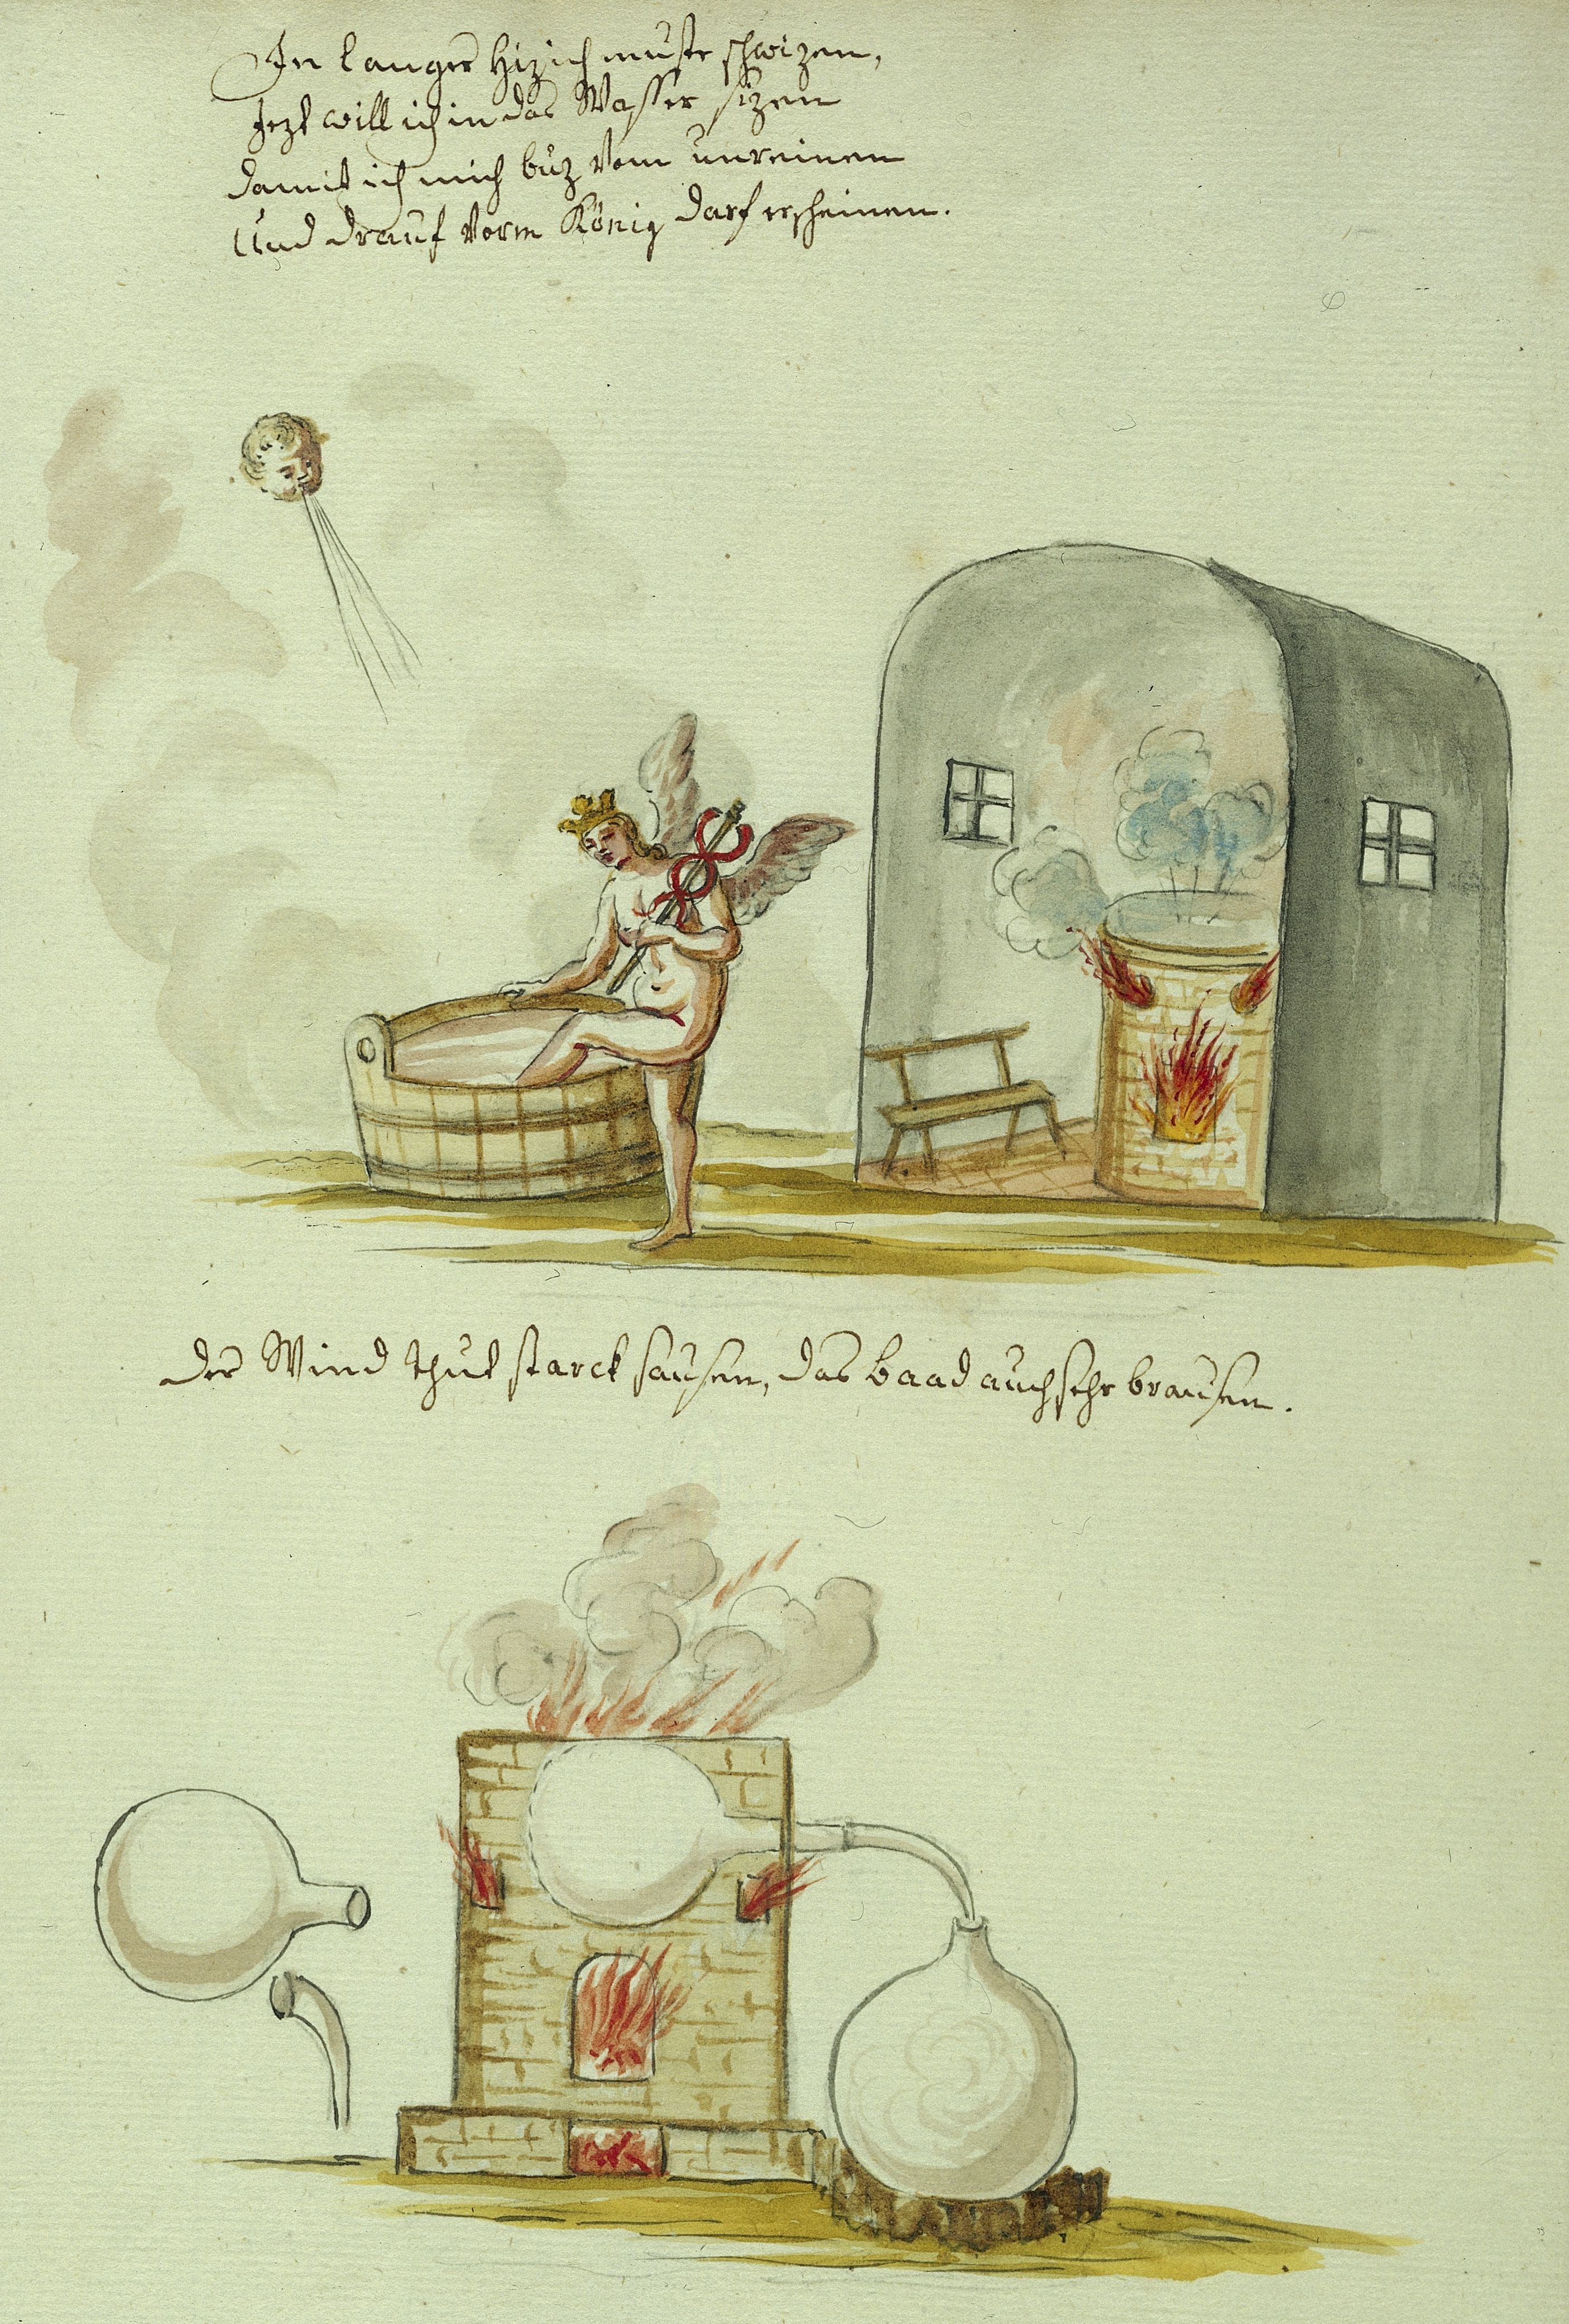 In langer Hiz ich muste schwizen,
Jezt will ich in das Wasser sizen
damit ich mich buz vom unreinen
Und drauf vorm König darf erscheinen.
der Wind thut starck sausen, das baad auch sehr brausen.